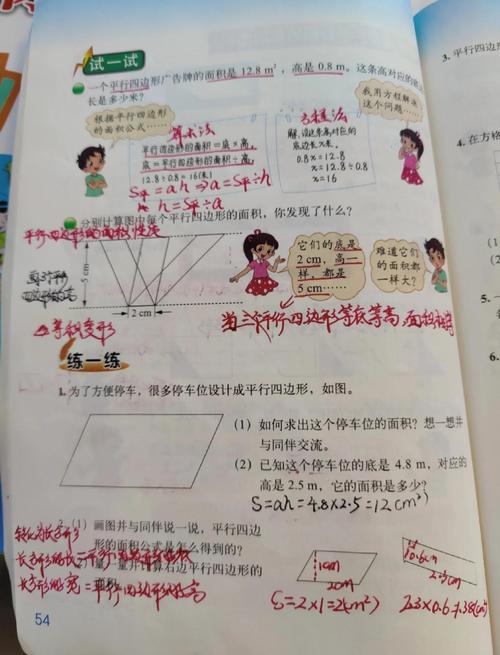 试一试
一个平行四边形广告牌的面积是12.8 m²，高是0.8 m。这条高对应的底
长是多少米？
根据平行四边形
的面积公式……
算术法
平行四边形的面积=底×高，
底=平行四边形的面积÷高，
12.8÷0.8=16(米)
S平=ah⇒a=S平÷h
h=S平÷a
方程法
解：设这条高对应的
底边长x米。
0.8x=12.8
x=12.8÷0.8
x=16
我用方程解决
这个问题……
分别计算图中每个平行四边形的面积，你发现了什么？
5 cm
2 cm
它们的底是
2 cm，高一
样，都是
5 cm……
难道它们
的面积都
一样大？
等积变形
当三个平行四边形等底等高，面积相等
练一练
1. 为了方便停车，很多停车位设计成平行四边形，如图。
(1) 如何求出这个停车位的面积？想一想并
与同伴交流。
(2) 已知这个停车位的底是4.8 m，对应的
高是2.5 m，它的面积是多少？
S=ah=4.8×2.5=12(cm²)
(1) 画图并与同伴说一说，平行四边
形的面积公式是怎么得到的？
(2) 量一量并计算右边平行四边形的
面积。
转化为长方形
长方形的宽=平行四边形的高
1cm
2cm
S=2×1=2(cm²)
0.6cm
2.3cm
2.3×0.6=1.38(cm²)
54
3. 平行四边形
4. 在方格
(1)
(2)
5.
6.